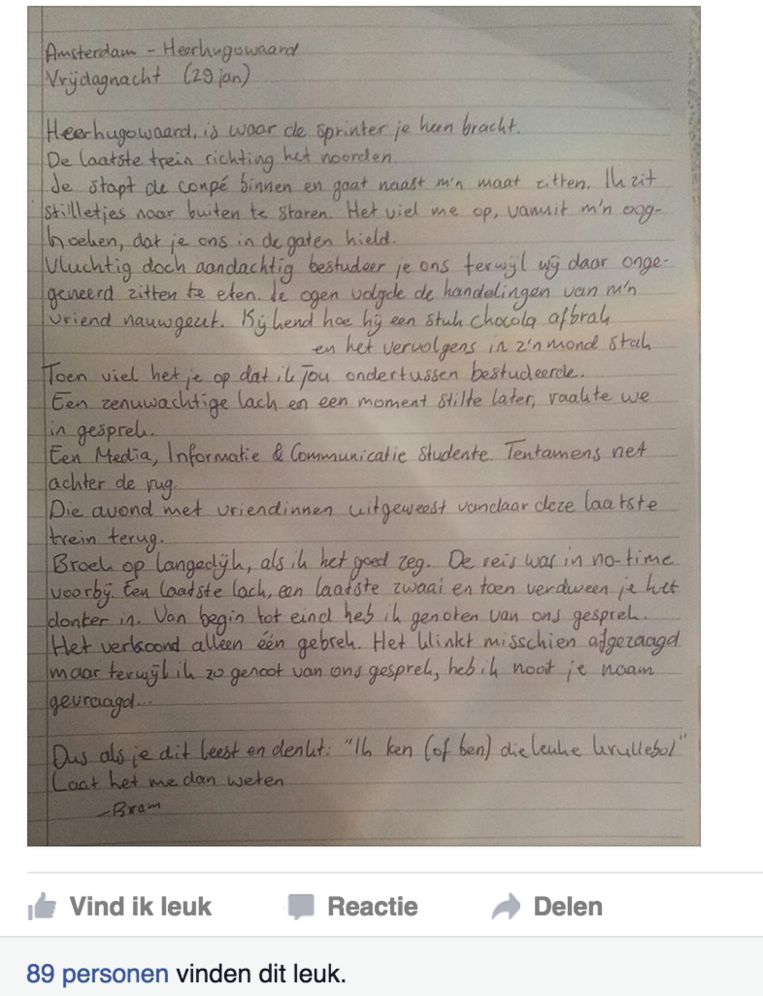 Amsterdam - Heerhugowaard
Vrijdagnacht (29 jan)
Heerhugowaard, is waar de sprinter je heen bracht.
De laatste trein richting het noorden.
Je stapt de coupé binnen en gaat naast m'n maat zitten. Ik zit
stilletjes naar buiten te staren. Het viel me op, vanuit m'n oog-
hoeken, dat je ons in de gaten hield.
Vluchtig doch aandachtig bestudeer je ons terwijl wij daar onge-
geneerd zitten te eten. Je ogen volgde de handelingen van m'n
vriend nauwgezet. Kijkend hoe hij een stuk chocola afbrak
en het vervolgens in z'n mond stak
Toen viel het je op dat ik jou ondertussen bestudeerde.
Een zenuwachtige lach en een moment stilte later, raakte we
in gesprek.
Een Media, Informatie & Communicatie studente. Tentamens net
achter de rug
Die avond met vriendinnen uitgeweest vandaar deze laatste
trein terug.
Broek op langedijk, als ik het goed zeg. De reis was in no-time
voorbij. Een laatste lach, een laatste zwaai en toen verdween je het
donker in. Van begin tot eind heb ik genoten van ons gesprek.
Het verkoond alleen één gebrek. Het klinkt misschien afgezaagd
maar terwijl ik zo genoot van ons gesprek, heb ik nooit je naam
gevraagd...
Dus als je dit leest en denkt: "Ik ken (of ben) die leuke krullebol"
Laat het me dan weten
-Bram
Vind ik leuk Reactie Delen
89 personen vinden dit leuk.